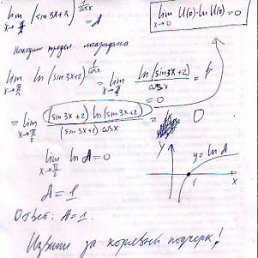 lim (sin3x+2)^(1/cosx) = A
x→π/2
lim U(x)·ln U(x) = 0
Находим предел логарифма
lim ln (sin3x+2)^(1/cosx) = lim ln(sin3x+2)/cosx =
= lim (sin3x+2) ln(sin3x+2) / (sin3x+2) cosx = 0
lim ln A = 0
x→π/2
A = 1
y
y = ln A
1
x
Ответ: A=1.
Извини за корявый почерк!